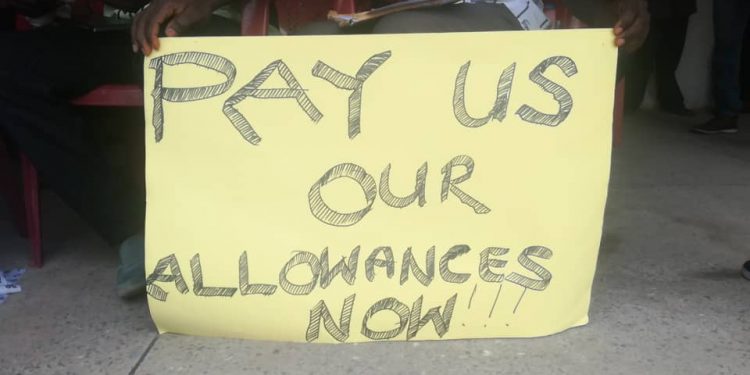 PAY US
OUR
ALLOWANCES
NOW!!!